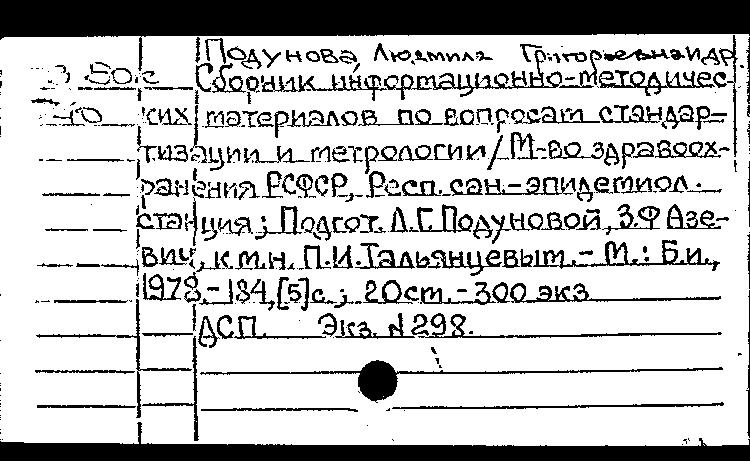 Подунова, Людмила Григорьевна и др.
Сборник информационно-методичес-
ких материалов по вопросам стандар-
тизации и метрологии/М-во здравоох-
ранения РСФСР, Респ. сан.-эпидемиол.
станция; Подгот. Л.Г. Подуновой, З.Ф Азе-
вич, к.м.н. П.И. Тальянцевым.- М.: Б.и.,
1978.- 184,[5]с.; 20см.- 300 экз
ДСП. Экз. N 298.